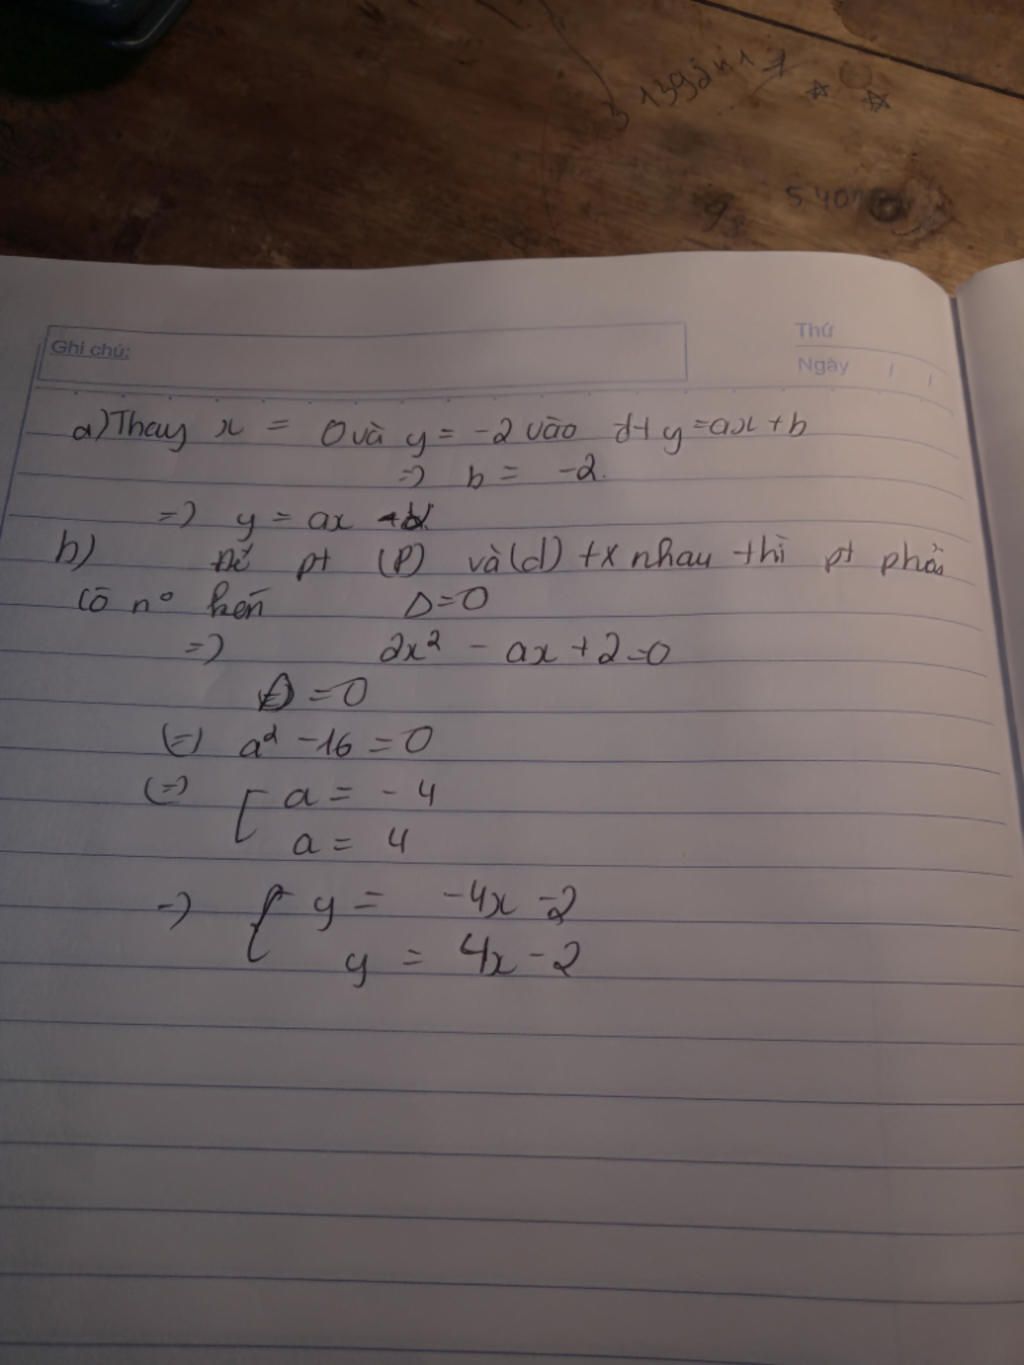 139 2 n 1
5 40
Ghi chú:
Thứ
Ngày / /
a) Thay x = 0 và y = -2 vào đt y = ax + b
=> b = -2.
=> y = ax
b) Để pt (P) và (d) tx nhau thì pt phải
có n° kép Δ=0
=> 2x² - ax + 2=0
Δ = 0
(=) a² - 16 = 0
(=) [ a = - 4
a = 4
=> { y = -4x - 2
y = 4x - 2